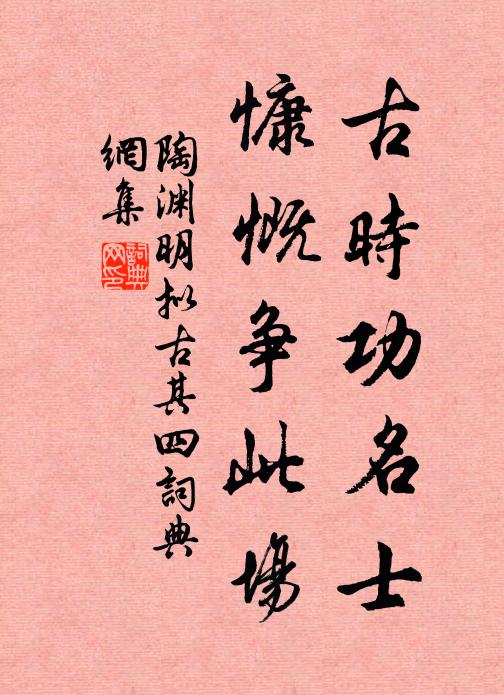 古時功名士
慷慨争此場
陶渊明拟古其四詞典
網集
詞典
网印